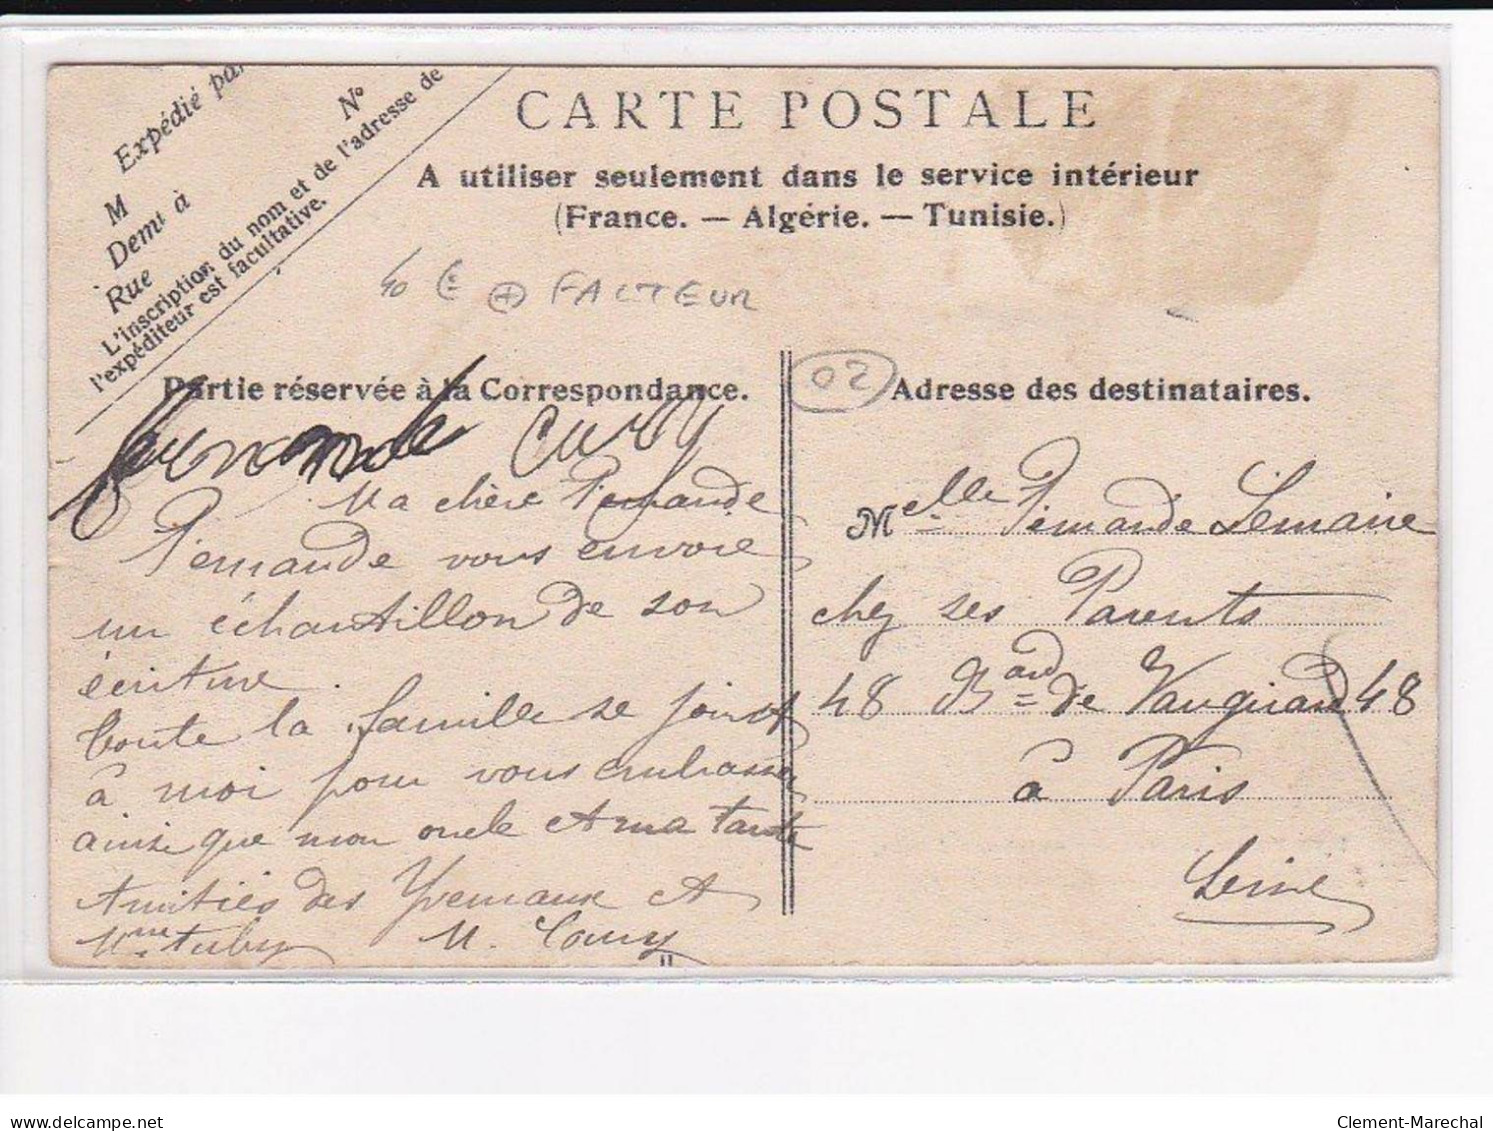 Expédié par
M N°
Demt à
Rue
L'inscription du nom et de l'adresse de
l'expéditeur est facultative.
CARTE POSTALE
A utiliser seulement dans le service intérieur
(France. — Algérie. — Tunisie.)
40 € FACTEUR
Partie réservée à la Correspondance.
fernande Cury
Ma chère Fernande
Fernande vous envoie
un échantillon de son
écriture.
toute la famille se joint
à moi pour vous embrasser
ainsi que mon oncle et ma tante
Amitiés des et
Mme M.
02
Adresse des destinataires.
Melle Fernande Lemaire
chez ses Parents
48 Bard de Vaugirard 48
à Paris
Seine
www.delcampe.net
Clement-Marechal